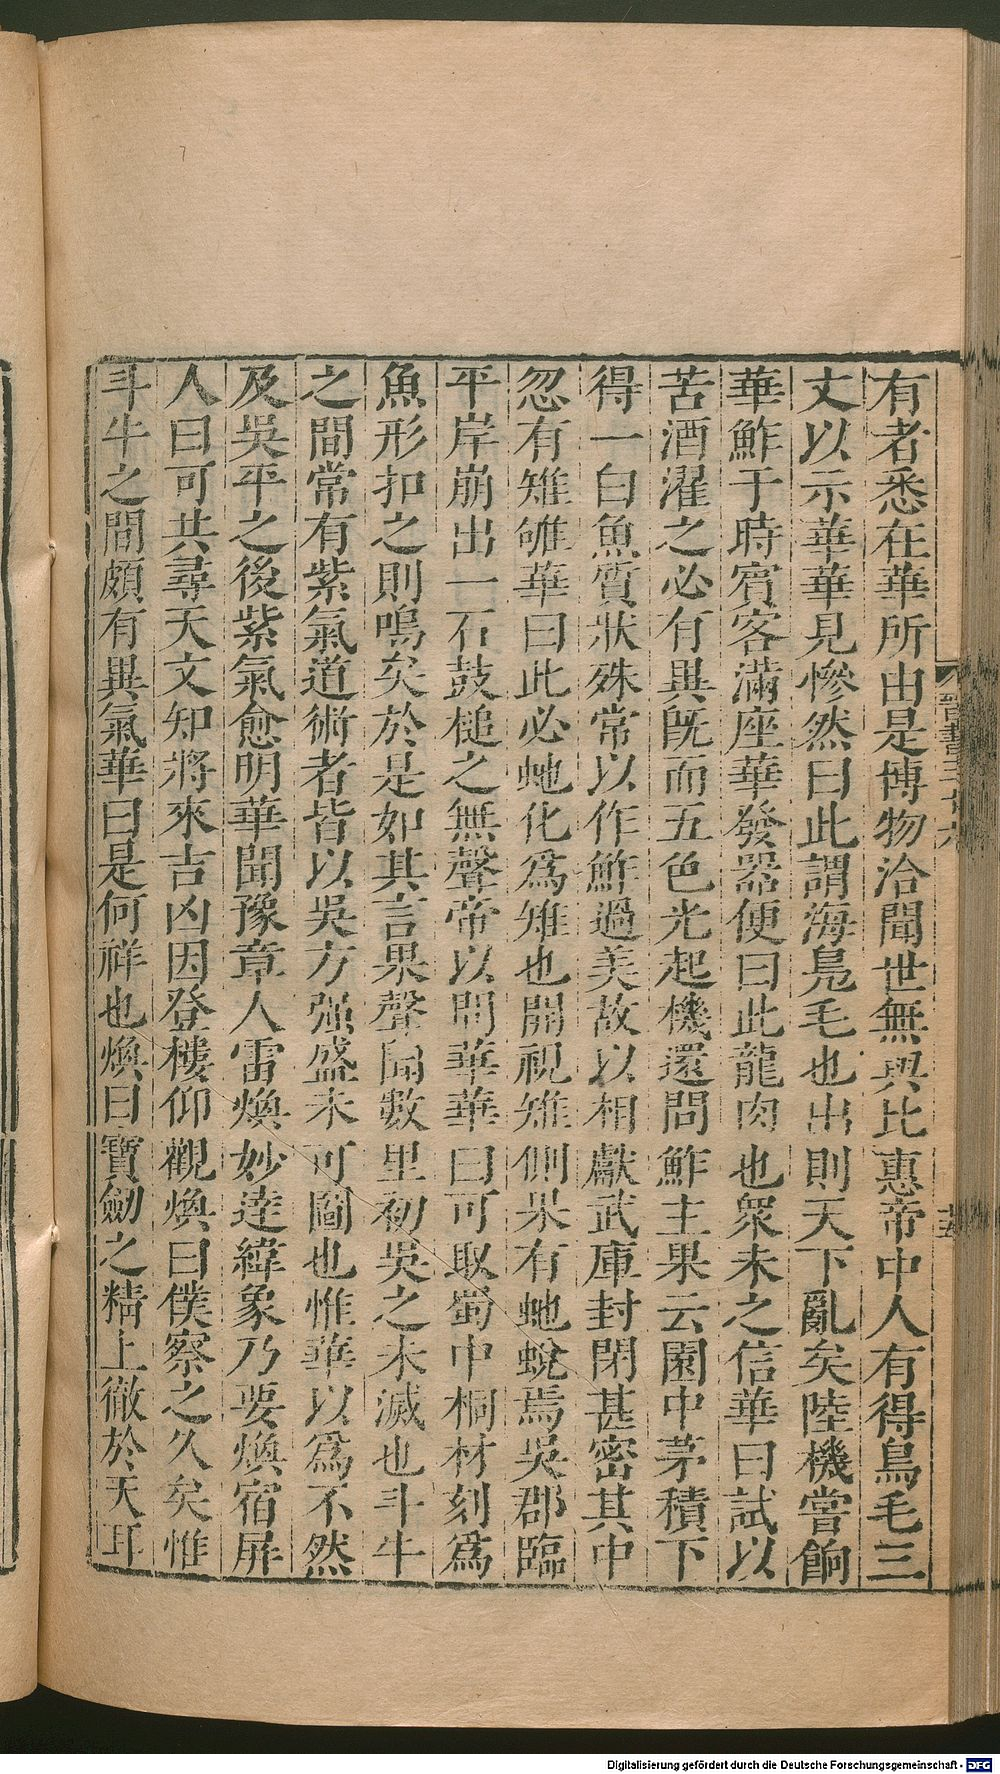 有者悉在華所由是博物洽聞世無與比惠帝中人有得鳥毛三
丈以示華華見慘然曰此謂海鳧毛也出則天下亂矣陸機嘗餉
華鮓于時賓客滿座華發器便曰此龍肉也衆未之信華曰試以
苦酒濯之必有異旣而五色光起機還問鮓主果云園中茅積下
得一白魚質狀殊常以作鮓過美故以相獻武庫封閉甚密其中
忽有雉雊華曰此必虵化爲雉也開視雉側果有虵蛻焉吳郡臨
平岸崩出一石鼓槌之無聲帝以問華華曰可取蜀中桐材刻爲
魚形扣之則鳴矣於是如其言果聲聞數里初吳之未滅也斗牛
之間常有紫氣道術者皆以吳方强盛未可圖也惟華以爲不然
及吳平之後紫氣愈明華聞豫章人雷煥妙達緯象乃要煥宿屏
人曰可共尋天文知將來吉凶因登樓仰觀煥曰僕察之久矣惟
斗牛之間頗有異氣華曰是何祥也煥曰寶劒之精上徹於天耳
Digitalisierung gefördert durch die Deutsche Forschungsgemeinschaft - DFG